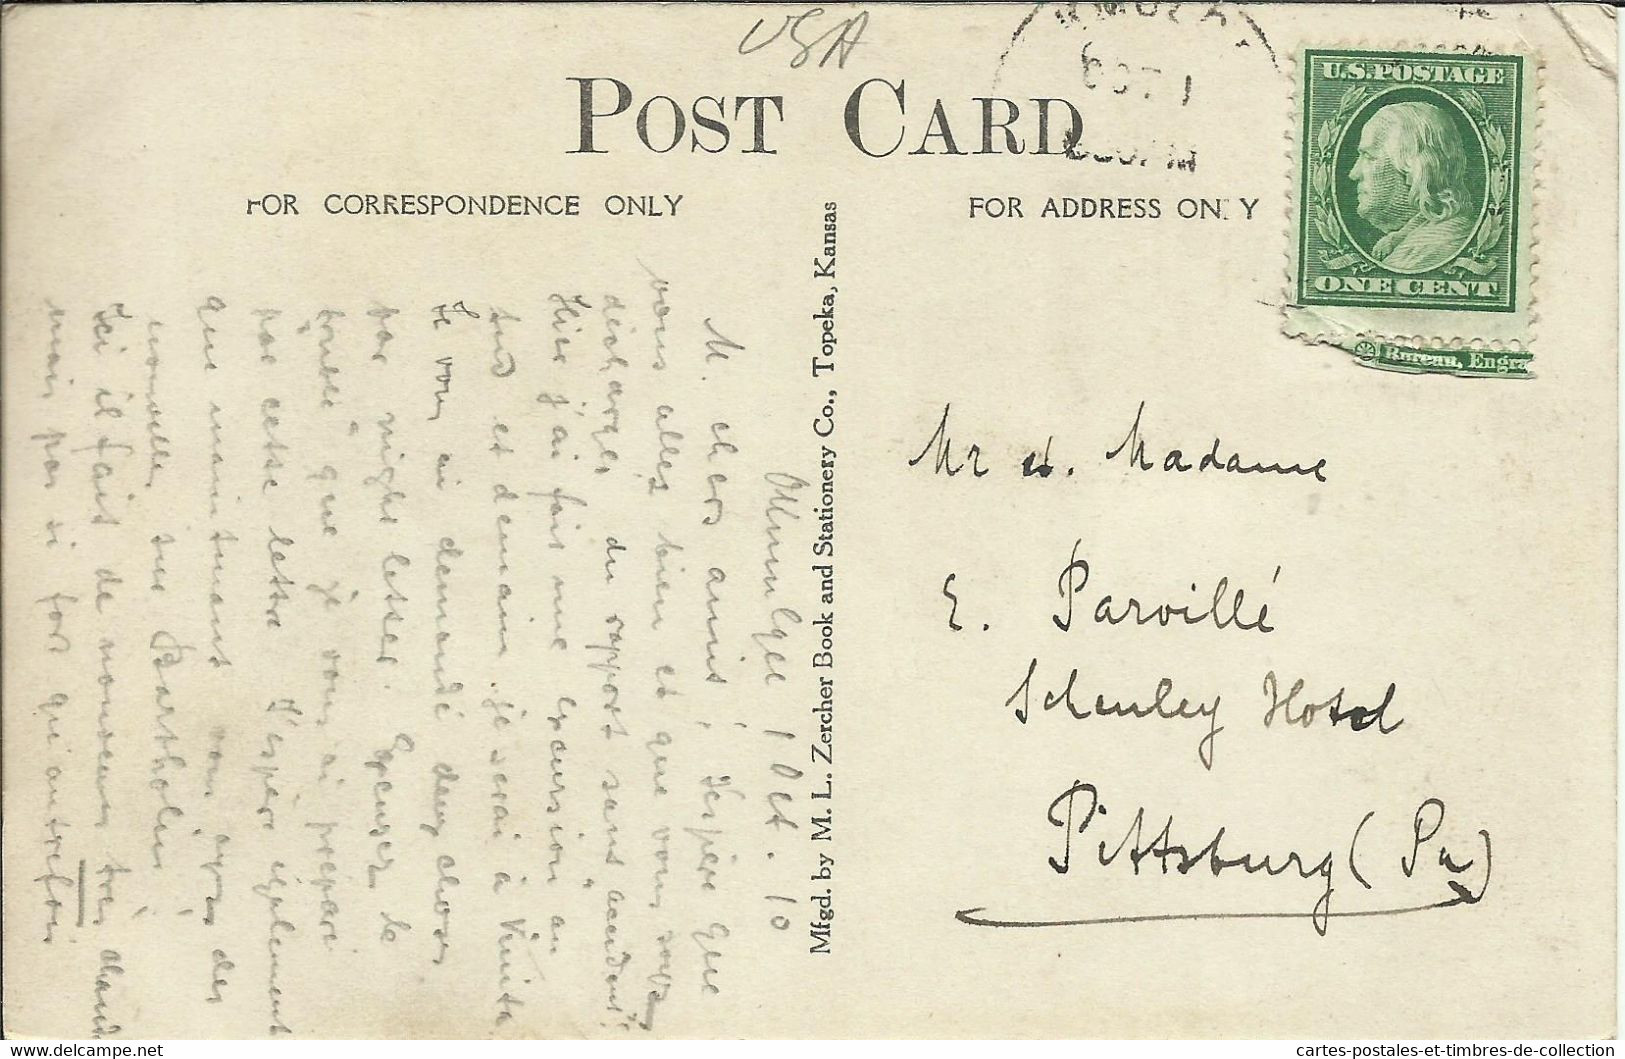 USA
POST CARD
OCT 1
U.S. POSTAGE
ONE CENT
Bureau, Engra
FOR CORRESPONDENCE ONLY
FOR ADDRESS ONLY
Mfgd. by M. L. Zercher Book and Stationery Co., Topeka, Kansas
1 Oct. 10
M. chers amis, J'espère que
vous allez bien et que vous
décharges du rapport sans "accident".
Hier j'ai fais une excursion au
sud et demain je serai à Vinita.
Je vous ai demandé deux choses
par night letter. Excusez le
trouble que je vous ai préparé
par cette lettre. J'espère également
que maintenant vous ayez des
nouvelles sur Bartholin
Ici il fait de nouveau très chaud
mais pas si fort qu'autrefois
Mr et. Madame
E. Parvillé
Schenley Hotel
Pittsburg (Pa)
cartes-postales-et-timbres-de-collection